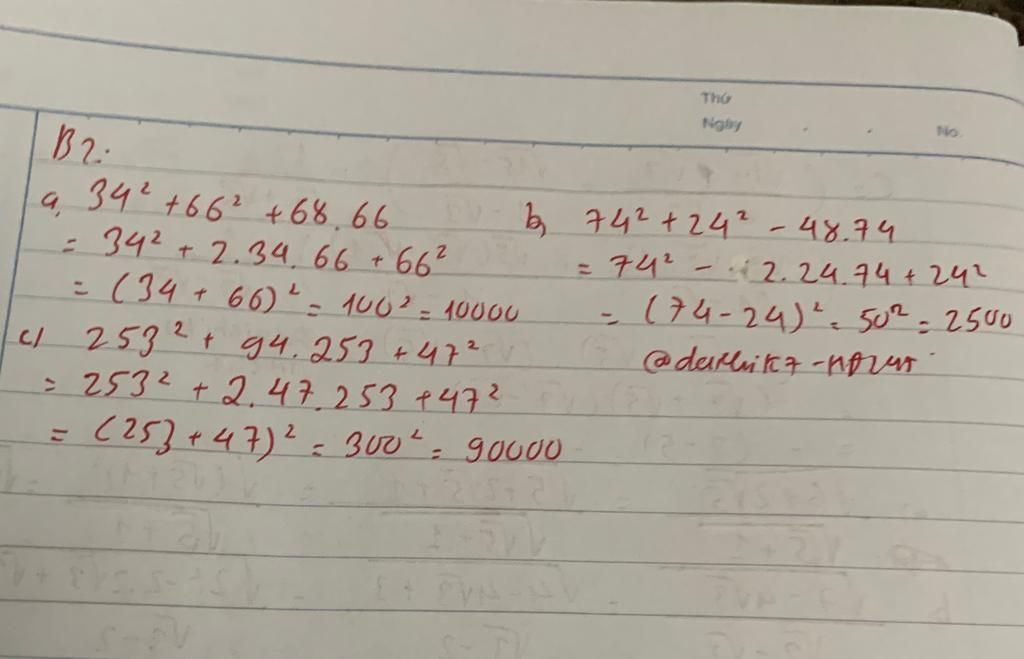 Thứ
Ngày . . No.
B2:
a, 34² + 66² + 68.66
= 34² + 2.34.66 + 66²
= (34 + 66)² = 100² = 10000
b, 74² + 24² - 48.74
= 74² - 2.24.74 + 24²
= (74 - 24)² = 50² = 2500
c) 253² + 94.253 + 47²
= 253² + 2.47.253 + 47²
= (253 + 47)² = 300² = 90000